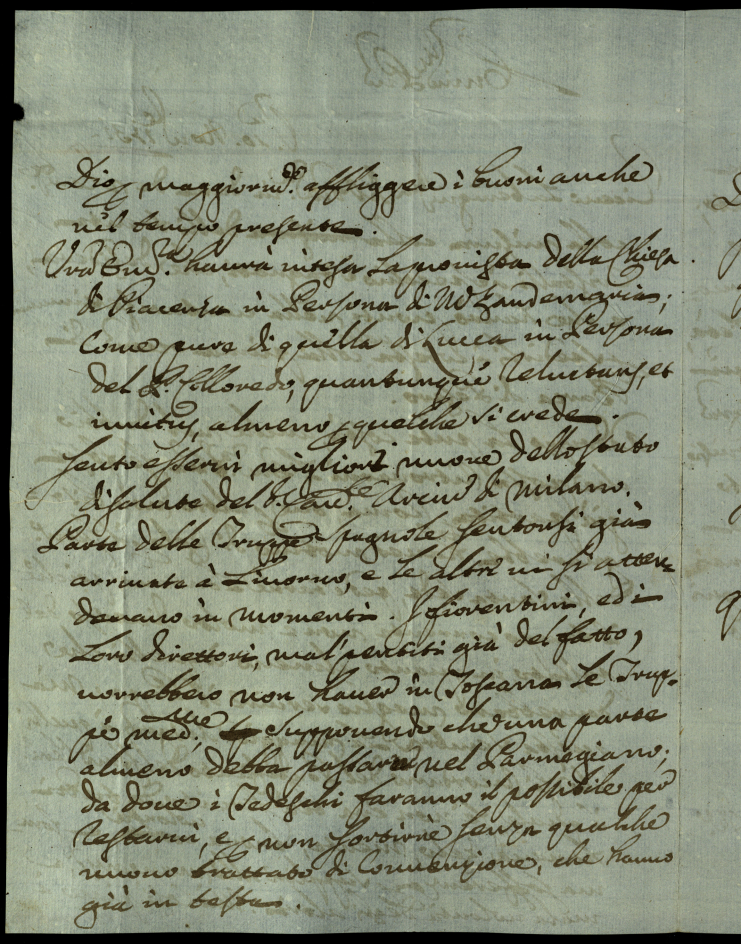 Dio p maggiorm.te affliggere i buoni anche
nel tempo presente.
Vrā Em.za haurà intesa la provista della Chiesa
di Piacenza in Persona di M.r Zandemaria;
Come pure di quella di Lucca in Persona
del P. Colloredo, quantunque reluctans, et
invitus, almeno p quel che si crede.
Sento esservi migliori nuove dello stato
di salute del S. Card.le Arciv.o di Milano.
Parte delle Truppe Spagnole sentonsi già
arrivate à Livorno, e le altre vi si atten-
devano in momenti. I fiorentini, ed i
loro direttori, mal pentiti già del fatto,
vorrebbero non haver in Toscana le Trup-
pe med.me; supponendo che una parte
almeno debba passare nel Parmegiano;
da dove i Tedeschi faranno il possibile per
restarvi, e p non sortirne senza qualche
nuovo trattato di Convenzione, che hanno
già in testa.